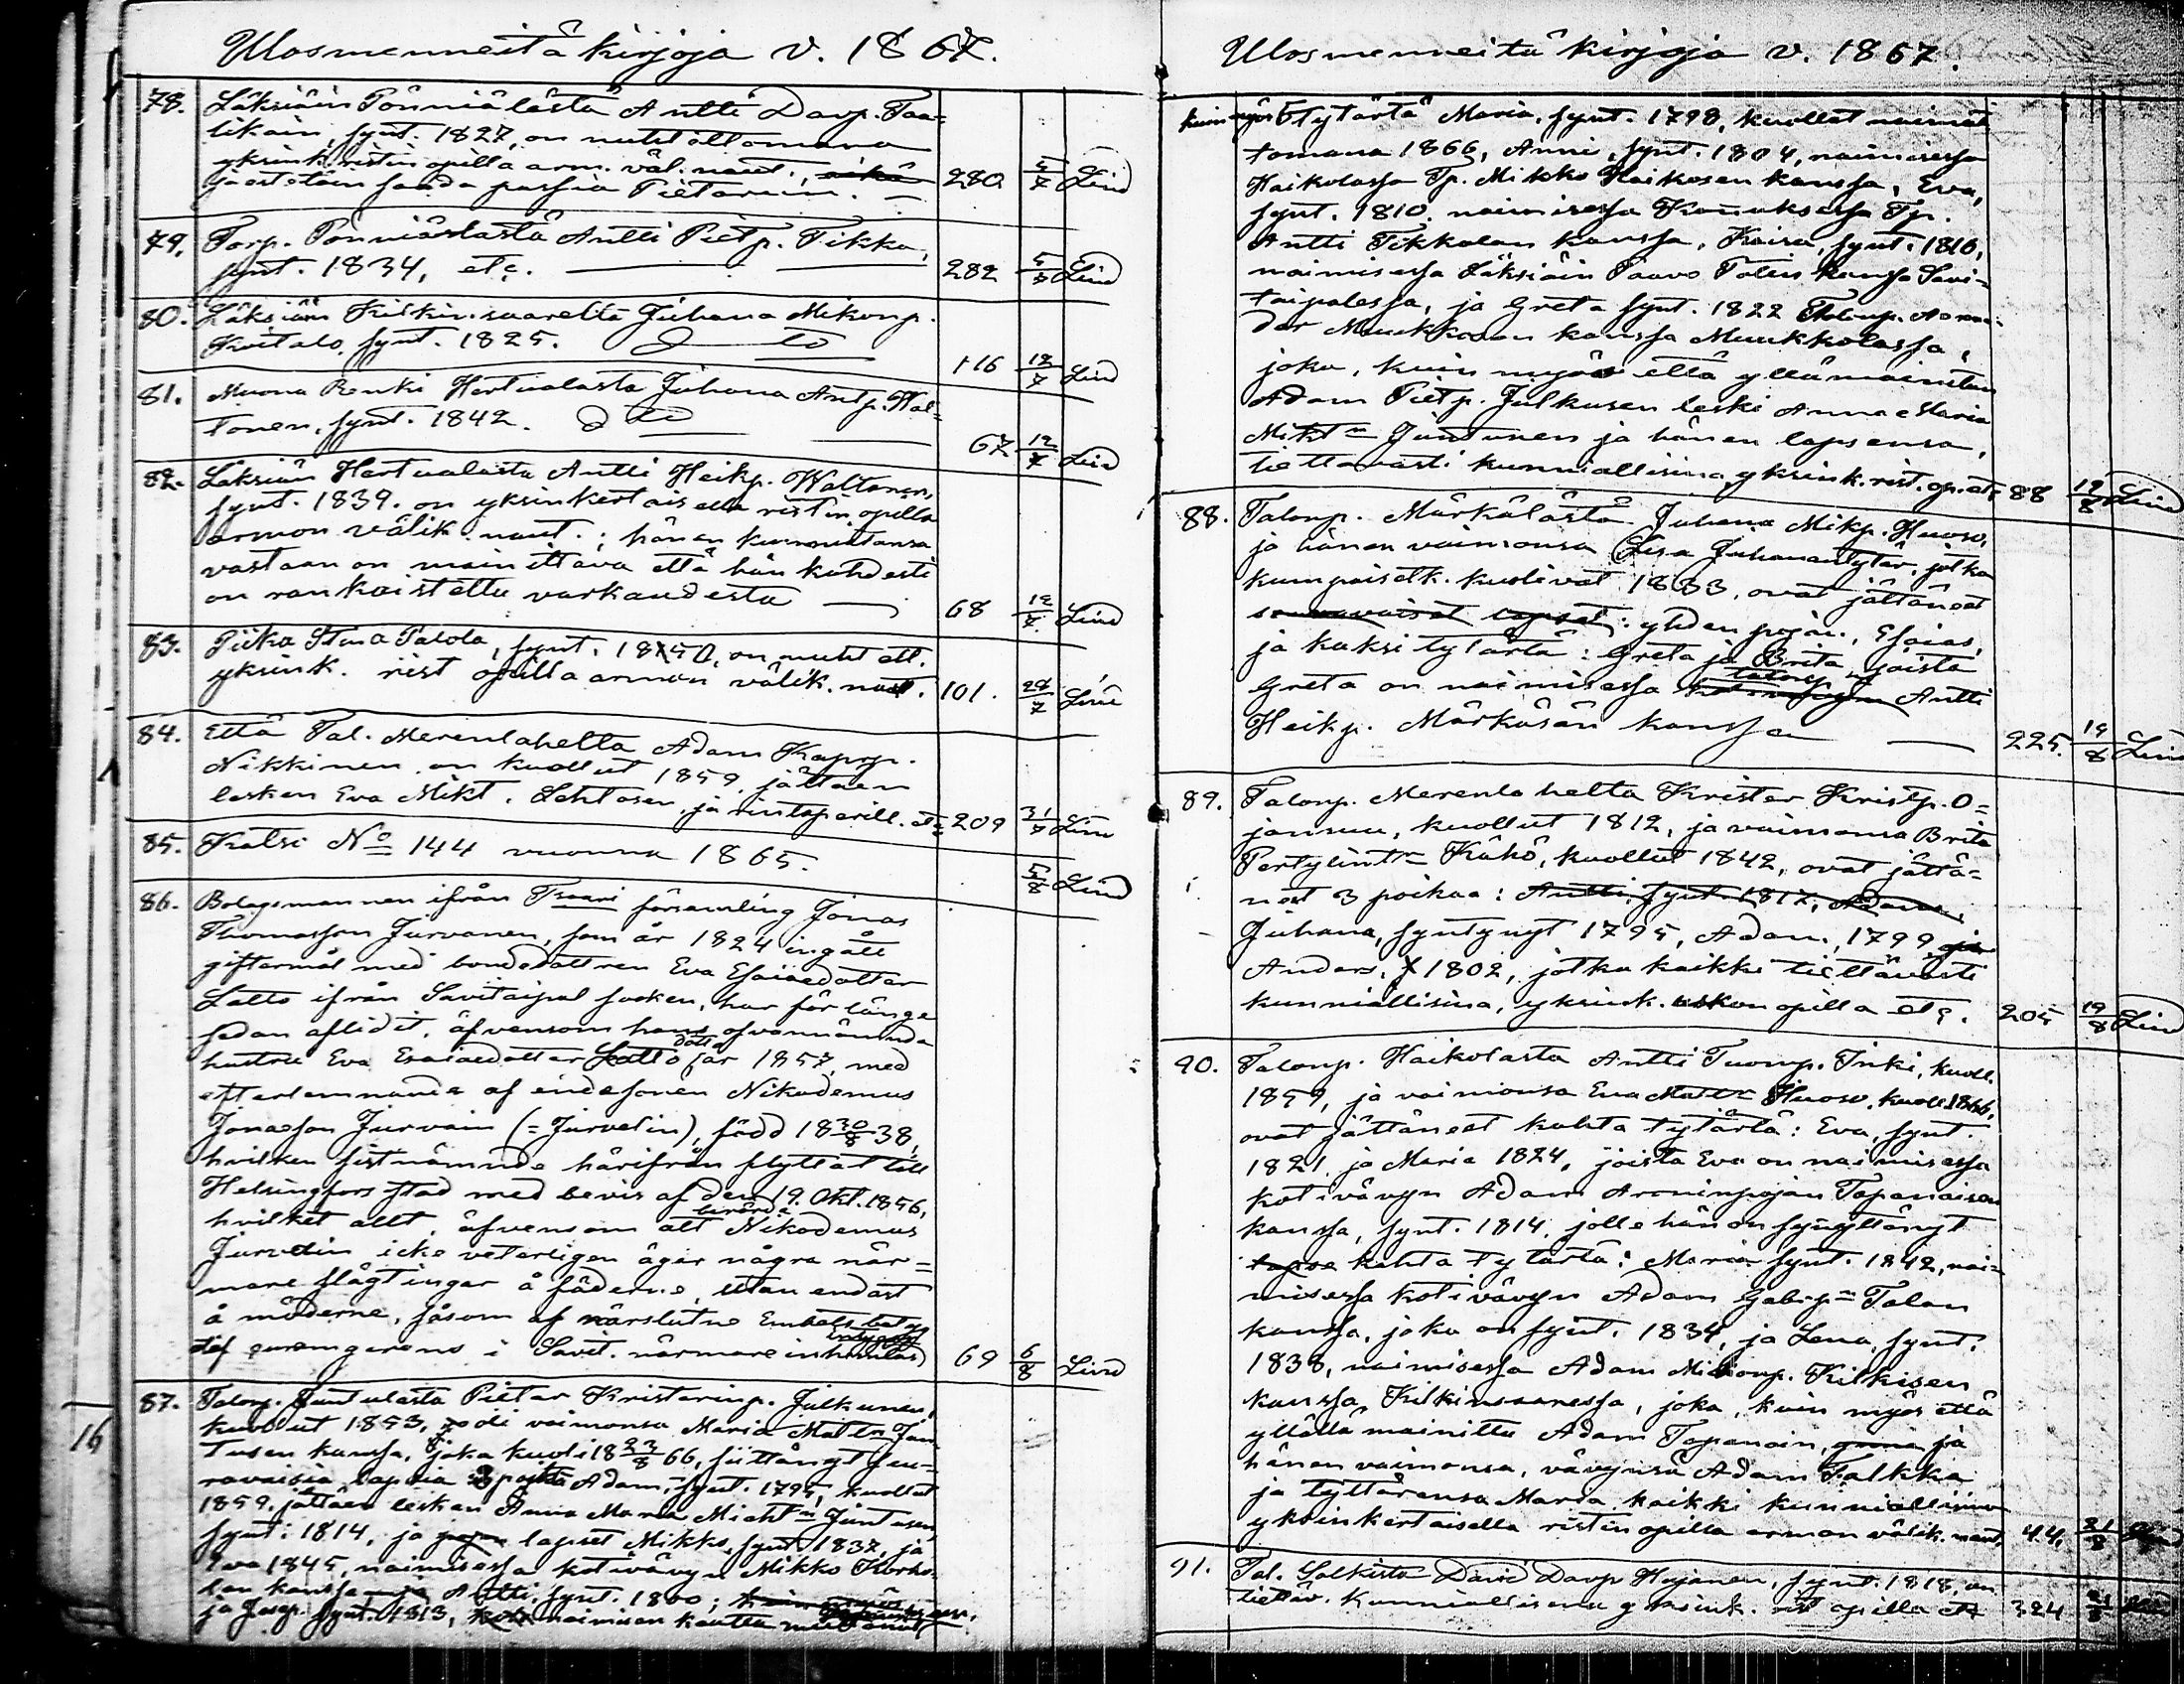 Ulosmenneitä kirjoja v. 1867.
78. Läksiäin Pönniälästä Antti Davp. Taa=
likain, synt. 1827, on nuhtettomana
yksink. ristin opilla arm. väl. naut.,
ja estetäin saada passia Pietariin. — 280 5/7 Lind
79. Torp. Pönniälästä Antti Pietp. Tikka,
synt. 1834, etc. — 282 5/7 Lind
80. Läksiäin Kilkinsaarelta Juhana Mikonp.
Koitalo, synt. 1825. D to 116 12/7 Lind
81. Muona Renki Hertualasta Juhana Antp. Wal=
tonen, synt. 1842. D to 67 12/7 Lind
82. Läksiäin Hertualasta Antti Heikp. Waltonen,
synt. 1839. on yksinkertaisella ristin opilla
armon välik. naut.; hänen kunniatansa
vastaan on mainittava että hän kahdesti
on rankaistettu varkaudesta — 68 12/7 Lind
83. Piika Stina Patola, synt. 1840, on nuhtett.
yksink. rist opilla armon välik. naut. 101. 28/7 Lind
84. Että Tal. Merenlahelta Adam Kaapp.
Nikkinen on kuollut 1859, jättäen
lesken Eva Mikt. Lehtosen, ja rintaperill. etc 209 31/7 Lind
85. Katso No 144 vuonna 1865. 5/8 Lind
86. Bolagsmannen ifrån församling Jonas
Thomasson Jurvanen, som år 1824 ingått
giftermål med bondedottren Eva Esaiædotter
Latto ifrån Savitaipal socken, har för länge
sedan aflidit, äfvensom hans ofvannämnda
hustru Eva Esaiædotter Latto, år 1857, med
efterlemnande af endesonen Nikodemus
Jonasson Jurvain (= Jurvelin), född 18 30/8 38,
hvilken sistnämnde härifrån flyttat till
Helsingfors stad med bevis af den 19. Okt. 1856,
hvilket allt, äfvensom att berörde Nikodemus
Jurvelin icke veterligen äger några när=
mare slägtingar å fäderne, utan endast
å möderne, såsom af närslutne Embets betyg
i Savit. närmare 69 6/8 Lind
87. Talonp. Juntulasta Pietar Kristerinp. Julkunen,
kuollut 1853, vaimonsa Maria Mattn Jun=
tusen kanssa, joka kuoli 18 23/8 66, jättänyt seu=
raavaisia lapsia: Adam, synt. 1795, kuollut
1859, jättäen lesken Anna Maria Micktn Juntusen,
synt. 1814, ja lapset Mikko, synt. 1837, ja
Eva 1845, naimisessa kotivävyn Mikko Korho=
sen kanssa Antti, synt. 1800;
ja Josep. synt. 1813, naimisen kautta
16
Ulosmenneitä kirjoja v. 1867.
kuin myös 5 tytärtä Maria, synt. 1798, kuollut naimat=
tomana 1866, Anni, synt. 1804, naimisessa
Haikolassa Tp. Mikko Haikosen kanssa, Eva,
synt. 1810. naimisessa Konnuksessa Tp.
Antti Tikkalan kanssa, Kaisa, synt. 1816,
naimisessa Läksiäin Paavo Talin kanssa Savi=
taipalessa, ja Greta synt. 1822 Talonp.
Muukkosen kanssa Muukkolassa,
joka, kuin myös että yllämainitun
Adam Pietp. Julkusen leski Anna Maria
Miktn Juntunen ja hänen lapsensa,
tiettävästi kunniallisina, yksink. rist. op. etc 88 19/8 Lind
88. Talonp. Märkälästä Juhana Mikp. Huoso,
ja hänen vaimonsa Lisa Juhanantytär, jotka
kumpaisetk. kuolivat 1833, ovat jättäneet
seuraavaiset lapset: yhden pojan, Esaias,
ja kaksi tytärtä: Greta ja Brita, joista
Greta on naimisessa talonp. Antti
Heikp. Märkäsän kanssa — 225. 19/8 Lind
89. Talonp. Merenlahelta Krister Kristp. O=
jannuu, kuollut 1812, ja vaimonsa Brita
Pertylintr Kähö, kuollut 1842, ovat jättä=
neet 3 poikaa: Antti, synt. 1817, Adam,
Juhana, syntynyt 1795, Adam, 1799,
Anders, 1802, jotka kaikki tiettävästi
kunniallisina, yksink. uskon opilla etc. 205 19/8 Lind
90. Talonp. Haikolasta Antti Tuomp. Inki, kuoll.
1859, ja vaimonsa Eva Mattr Huoso, kuoll 1866,
ovat jättäneet kahta tytärtä: Eva, synt.
1821, ja Maria 1824, joista Eva on naimisessa
kotivävyn Adam Aroninpojan Tapanaisen
kanssa, synt. 1814, jolle hän on synnyttänyt
kahta tytärtä: Maria synt. 1842, nai=
misessa kotivävyn Adam Gabrpn Talan
kanssa, joka on synt. 1834, ja Lena, synt.
1838, naimisessa Adam Mikonp. Kilkisen
kanssa, Kilkinsaaressa, joka, kuin myös että
yllällä mainittu Adam Tapanain, ja
hänen vaimonsa, vävynsä Adam Talkka
ja tyttärensä Maria kaikki kunniallisina
yksinkertaisella ristin opilla armon välik. naut. 44. 21/8
91. Tal. Solkista David Davp Hujanen, synt. 1818, on
tietäv. kunniallisena yksink. rist opilla etc 324 21/8